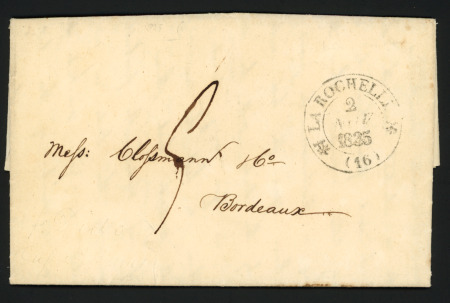 LA ROCHELLE
2
1835
(16)
5
Mess: Clossmann & Co
Bordeaux